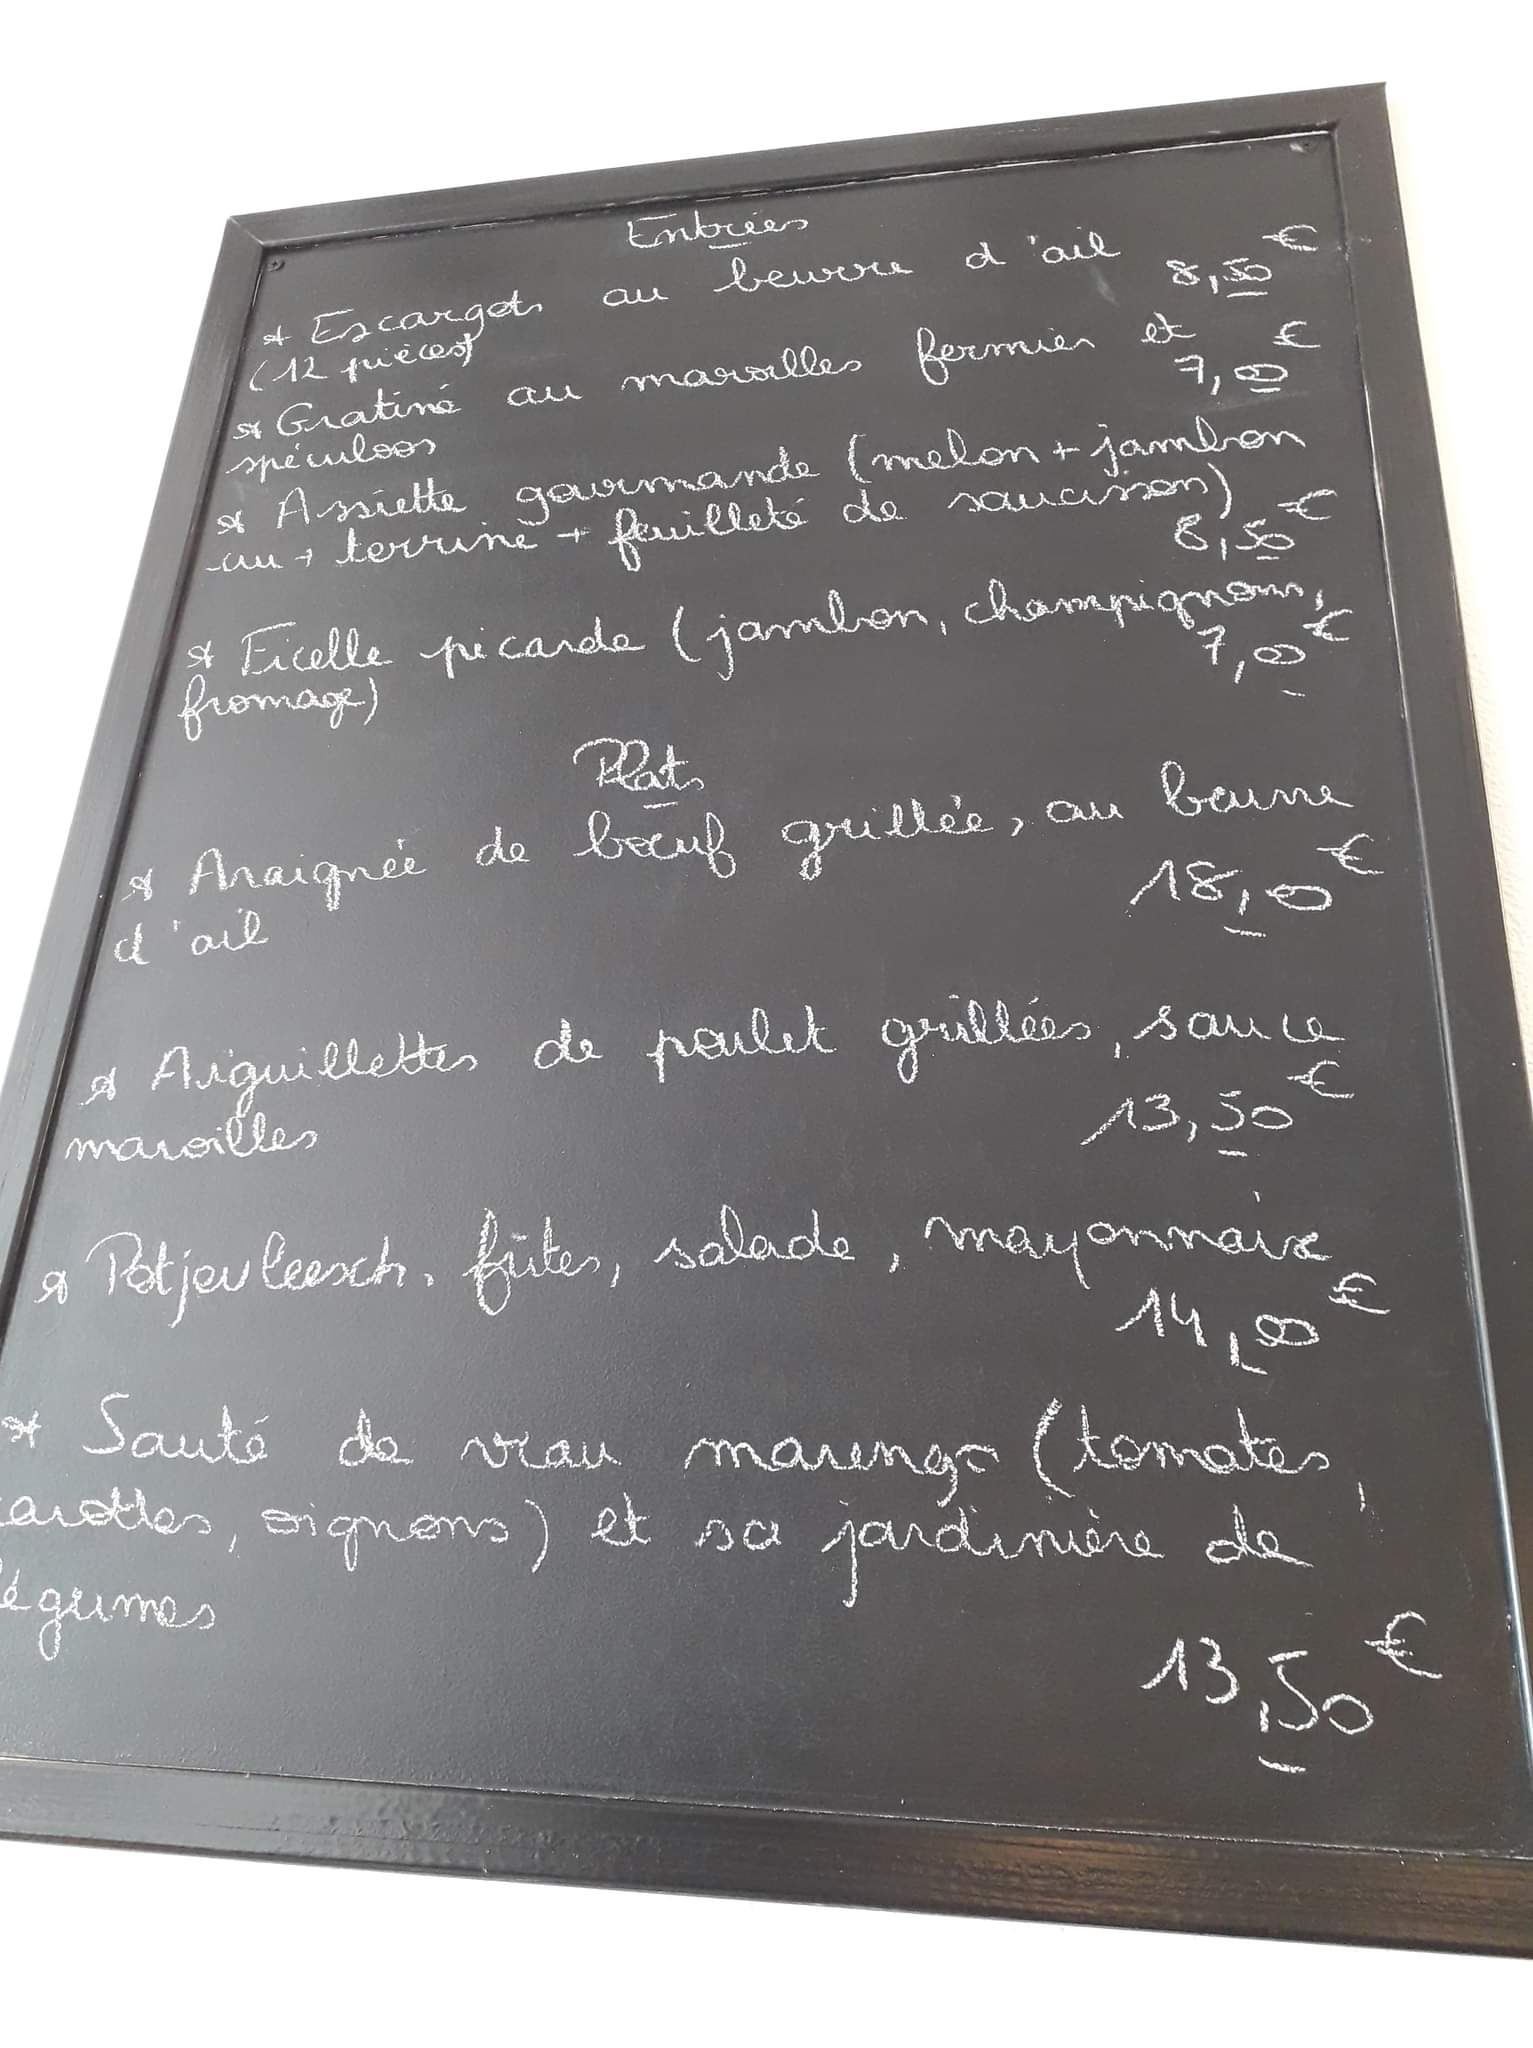 Entrées
* Escargots au beurre d'ail 8,50 €
(12 pièces)
* Gratiné au maroilles fermier et
spéculoos 7,00 €
* Assiette gourmande (melon + jambon
cru + terrine + feuilleté de saucisson)
8,50 €
* Ficelle picarde (jambon, champignons,
fromage) 7,00 €
Plats
* Araignée de boeuf grillée, au beurre
d'ail 18,00 €
* Aiguillettes de poulet grillées, sauce
maroilles 13,50 €
* Potjevleesch, frites, salade, mayonnaise
14,00 €
* Sauté de veau marengo (tomates,
carottes, oignons) et sa jardinière de
légumes
13,50 €